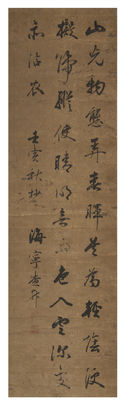 山光物態弄春暉莫為輕陰便
擬歸縱使晴明無雨色入雲深處
亦沾衣 壬寅秋杪 海寧查昇